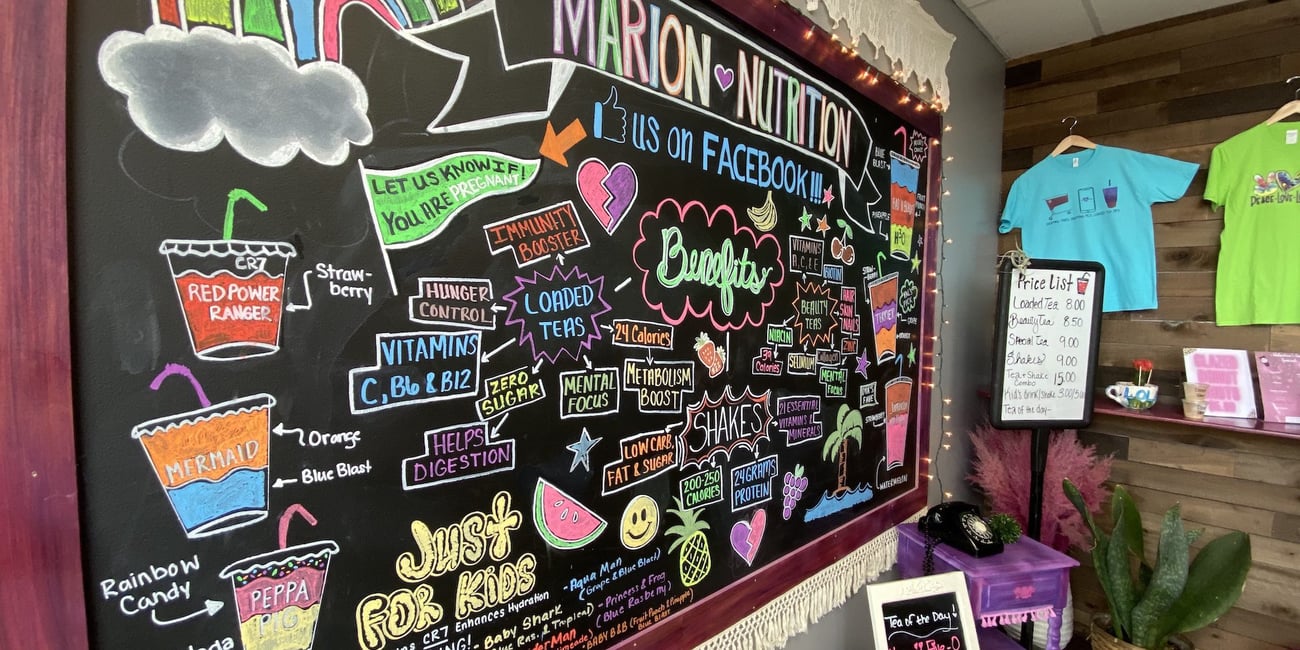 MARION NUTRITION
US ON FACEBOOK!!!
LET US KNOW IF
YOU ARE PREGNANT!
IMMUNITY
BOOSTER
HUNGER
CONTROL
LOADED
TEAS
24 Calories
VITAMINS
C, B6 & B12
ZERO
SUGAR
MENTAL
FOCUS
METABOLISM
BOOST
HELPS
DIGESTION
Benefits
VITAMINS
A, C, E, E
BIOTIN
BEAUTY
TEAS
HAIR
SKIN
NAILS
ZINC
NIACIN
39
Calories
SELENIUM
Collagen
MENTAL
FOCUS
SHAKES
21 ESSENTIAL
VITAMINS &
MINERALS
LOW CARB,
FAT & SUGAR
200-250
CALORIES
24 GRAMS
PROTEIN
CR7
RED POWER
RANGER
Straw-
berry
MERMAID
Orange
Blue Blast
Rainbow
Candy
PEPPA
PIG
JUST
FOR KIDS
CR7 Enhances Hydration
- Aqua Man
(Grape & Blue Blast)
- Princess & Frog
(Blue Rasberry)
- Baby Shark
& Tropical)
- BABY B&B (Fruit Punch & Pineapple
Blue Blast)
BLUE
BLAST
PINEAPPLE
H2O
WATERMELON
Price List
Loaded Tea 8.00
Beauty Tea 8.50
Special Tea 9.00
Shakes 9.00
Tea & Shake
Combo 15.00
Kid's Drink/Shake 3.00/5.00
Tea of the day-
LOL
Tea of the Day!